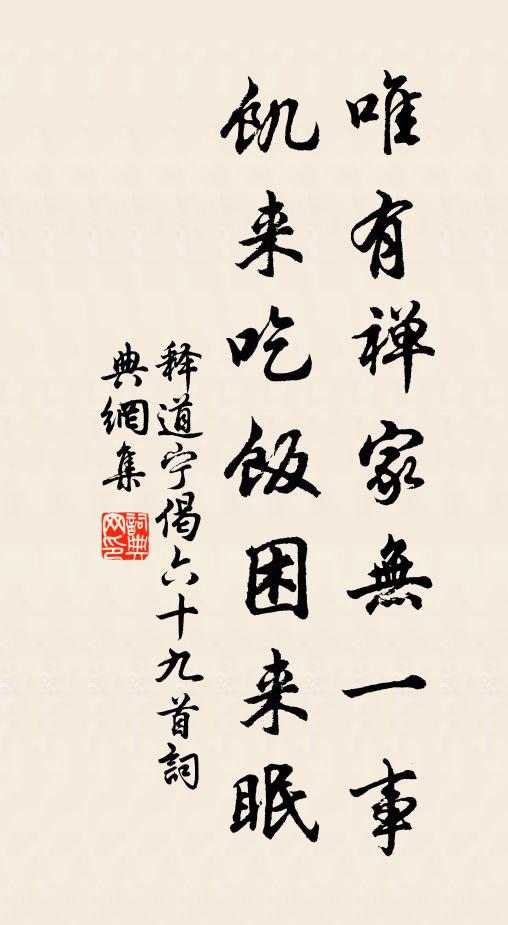 唯有禅家無一事
飢来吃飯困来眠
释道宁偈六十九首詞
典網集
詞典网印